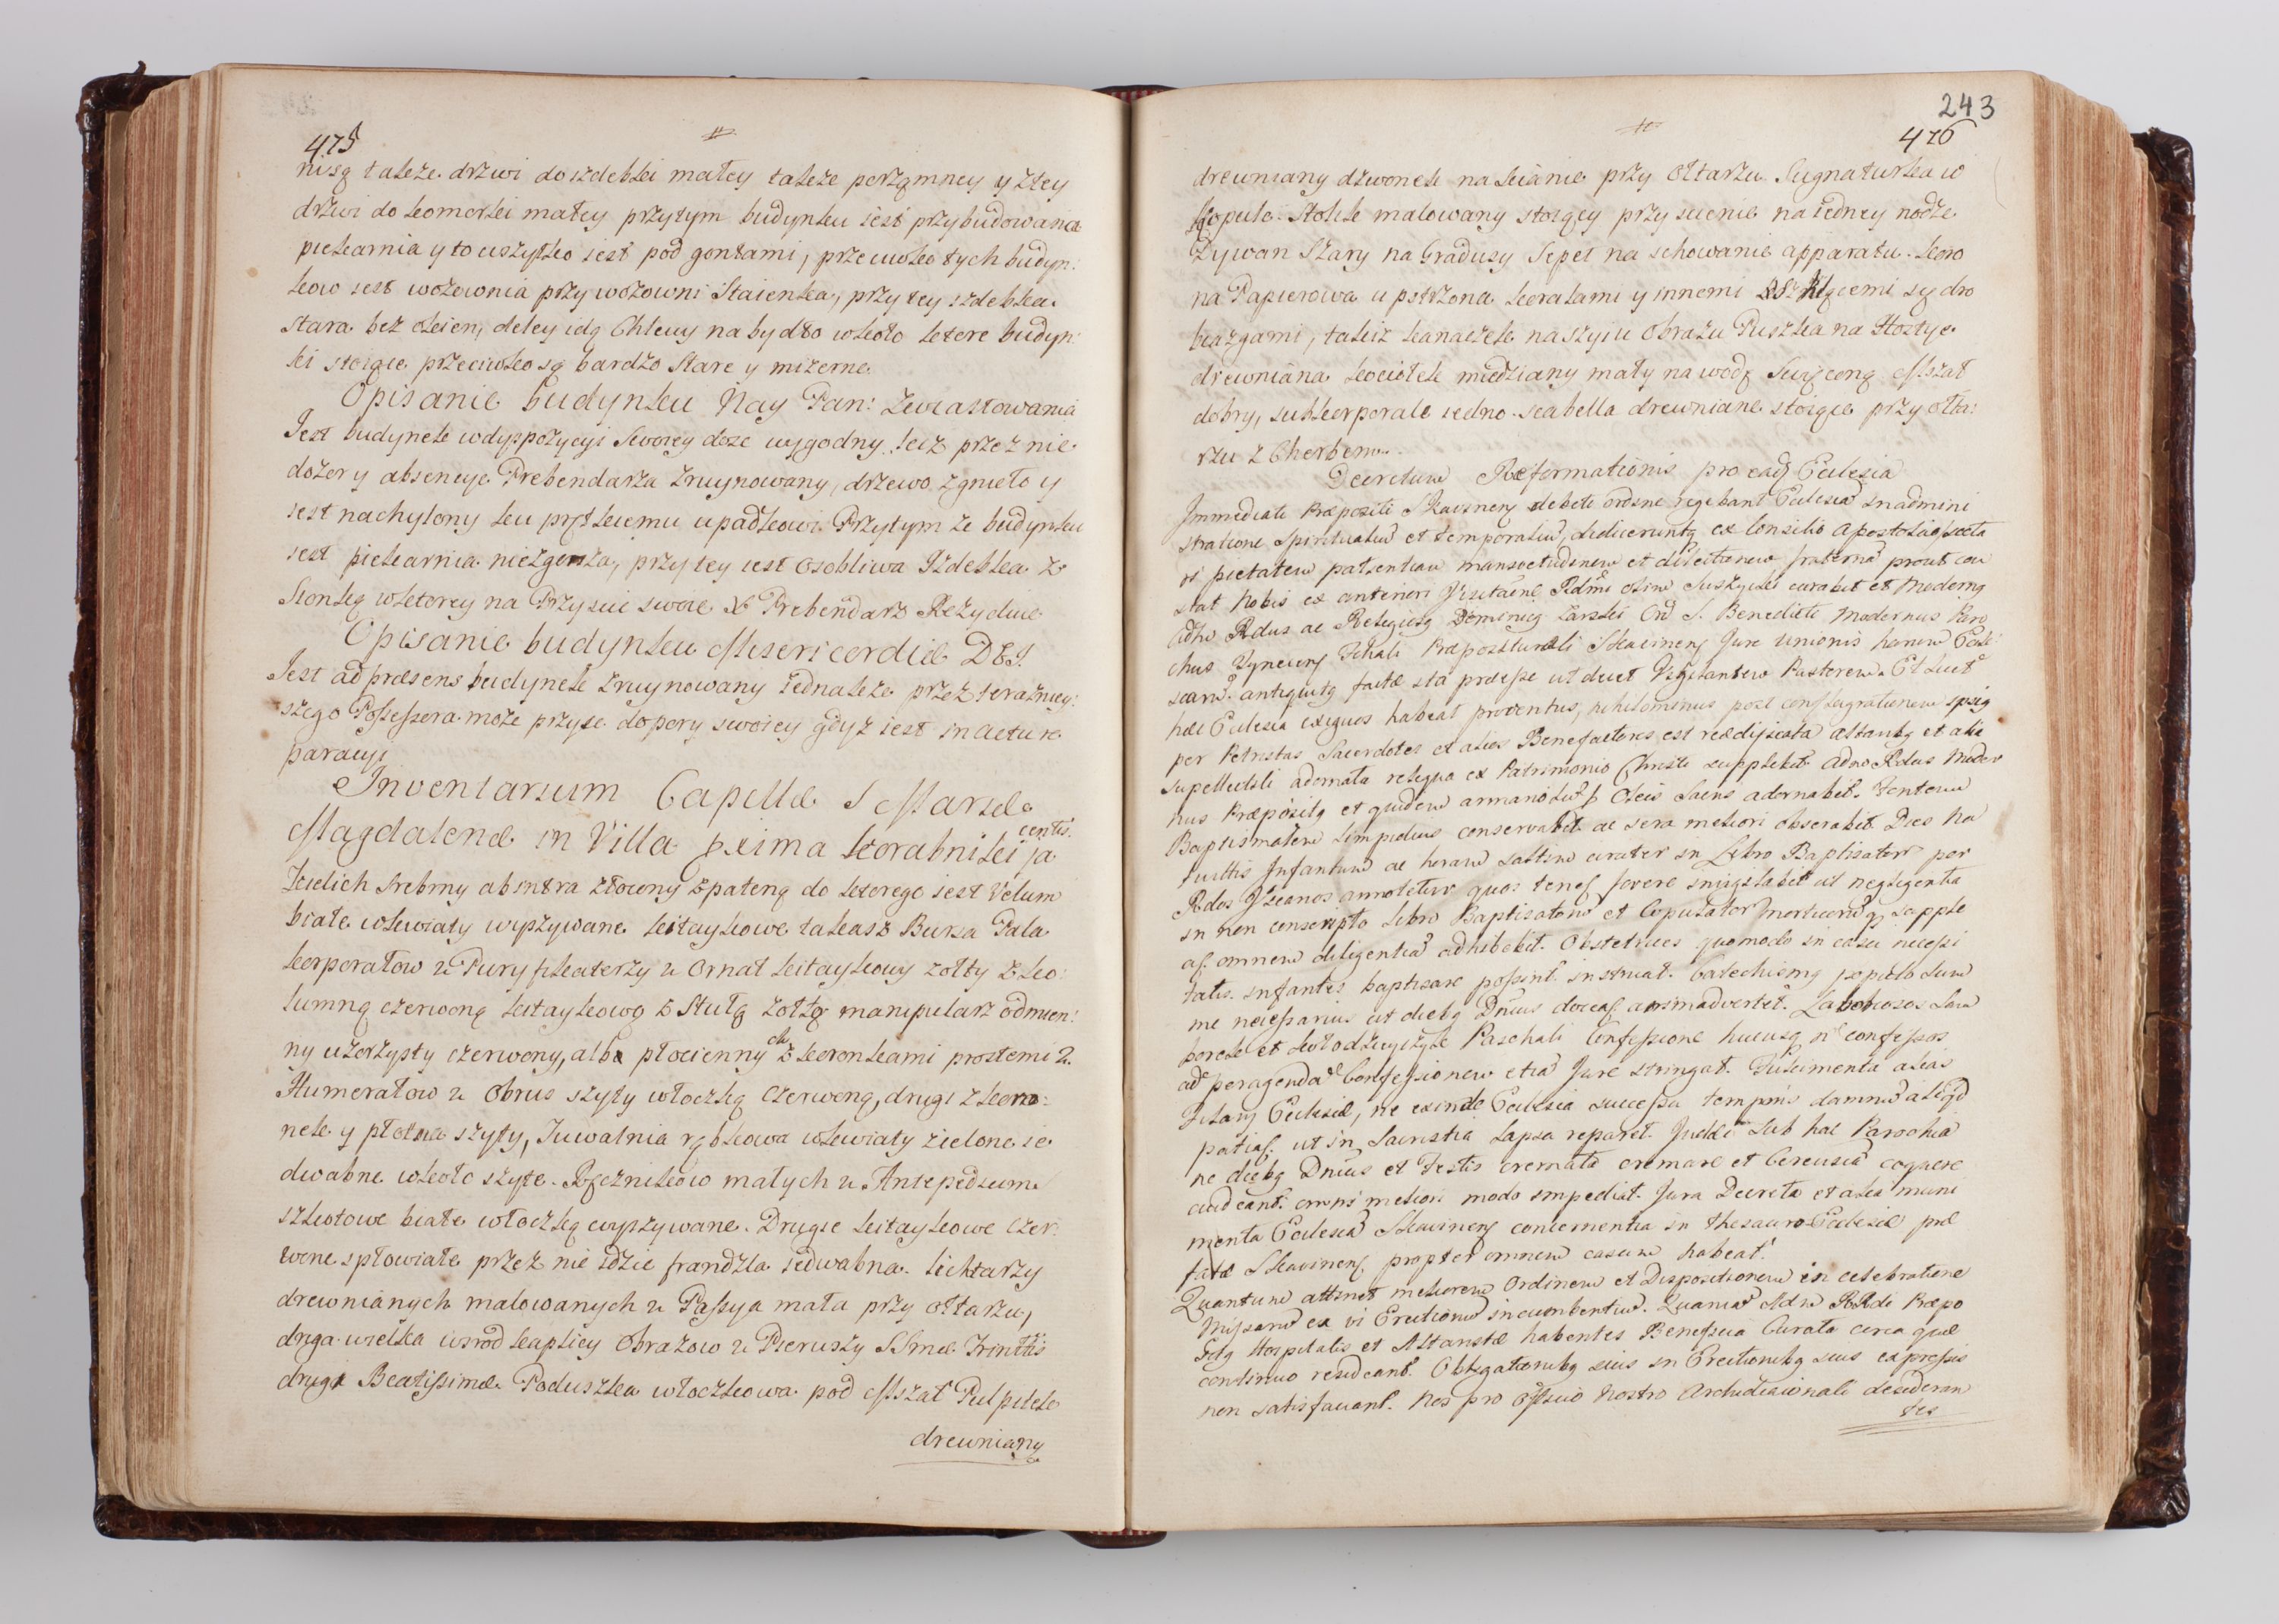 475
nisą także drzwi do izdebki małey także porządney y z tey
drzwi do komorki małey przytym budynku iest przybudowana
piekarnia y to wszytko iest pod gontami, przeciwko tych budyn:
kow iest wozownia przy wozowni Staienka, przy tey izdebka
stara bez okien, deley idą Chlewy na bydło wkoło ktore budyn:
ki stoiące przeciwko są bardzo Stare y mizerne.
Opisanie budynku Nay Pan: Zwiastowania
Jest budynek w dyspozycyi Swoiey dosc wygodny, lecz przez nie
dozor y absencye Prebendarza zruynowany, drzewo zgnieło y
iest nachylony ku prętkiemu upadkowi. Przytym ze budynku
iest piekarnia niezgorsza, przy tey iest osobliwa Izdebka z
Sionką w ktorey na Przyscie swoie X Prebendarz Rezyduie
Opisanie budynku Misericordiæ DEI.
Jest ad præsens budynek zruynowany iednakze przez terazniey:
szego Possessora moze przysc do pory swoiey gdyz iest in actu re
paracyi
Inventarium Capellæ S Mariæ
Magdalenæ in Villa proxima Korabniki ja
centis.
Kielich srebrny ab intra złocony z pateną do ktorego iest Velum
białe w kwiaty wyszywane kitaykowe takasz Bursa Pala
korporałow 2 Puryfikaterzy 2 Ornat kitaykowy zołty z ko:
lumną czerwoną kitaykową z Stułą zołtą manipularz odmien:
ny uzorzysty czerwony, alba płocienny ch z koronkami prostemi 2.
Humerałow 2 Obrus szyty włoczką czerwoną, drugi z koro:
nek y płotna szyty, Tuwalnia rąbkowa w kwiaty zielone ie
dwabne wkoło szyte. Ręcznikow małych 2. Antepedium
szkotowe białe włoczką wyszywane. Drugie kitaykowe czer:
wone spłowiałe przez nie idzie frandzla iedwabna. Lichtarzy
drewnianych malowanych 2 Passya mała przy ołtarzu,
druga wielka wsrod kaplicy Obrazow 2 Pierwszy SSmæ Trinittis
drugi Beatissimæ. Poduszka włoczkowa pod Mszał Pulpitek
drewniany
243
476
drewniany dzwonek na scianie przy Ołtarzu. Sygnaturka w
kopule. Stolik malowany stoiący przy scienie na iedney nodze
Dywan Szary na Gradusy Sepet na schowanie apparatu. koro
na Papierowa upstrzona koralami y innemi się dro
biazgami, takiz kanaczek na szyiu Obrazu Puszka na Hostye
drewniana kociołek miedziany mały na wodę Swięconą Mszał
dobry, subkorporale iedno. scabella drewniane stoiące przy ołta:
rzu z Cherbem.
Decretum Reformationis pro eadẽ Ecclesia
Immediati Præpositi Skavinenẽ debito ordine regebant Ecclesiã in admini
stratione Spiritualiũ et temporaliũ, deduceruntq ex Consilio Apostoli secta
ri pietatem patientiam mansvetudinem et dilectionem fraternã prout con
stat Nobis ex anteriori Visitãne Rdmi olim Juszyński curabit et Modernq
Adm Rdus ac Religiosq Dominicq Ord S. Benedicti Modernus Paro
chus Tynecenẽ Filiali Præpositurali Skavinenẽ Jure unionis harum Eccle
siarũ antiquitq factæ ita præesse ut decet Vigilantem Pastorem. Et licet
hæc Ecclesia exiguos habeat proventus, nihilominus post conflagrationem ipsiq
per Petristas Sacerdotes et alios Benefactores est reædificata Altaribq et alia
supellectili adornata reliqua ex Patrimonio Christi supplebit Adm Rdus Moder
nus Præpositq et quidem armariolũ p Oleis Sacris adornabit. Fontem
Baptismalem limpidius conservabit ac sera meliori obserabit. Dies Na
tivittis Infantium ac horam saltim circiter in Libro Baptisatorũ per
Rdos Vicanos annotetur quos fovere invigilabit ut negligentia
in non conscripto Libro Baptisatorũ et Copulatorũ Mortuorũq supple
at omnem diligentiã adhibebit. Obstetrices quomodo in casu necessi
tatis infantes baptisare possint instruat. Catechismq populo sum
me necessarius ut diebq Dñicis doceat animadvertet. Laboriosos
et Paschali Confessione hucusq nõ confessos
ad peragendã Confessionem etiã Jure stringat. Fulcimenta alias
Filary Ecclesiæ, ne exinde Ecclesia successu tempris damnũ aliqd
patiat ut in Sacristia lapsa reparet. Judæi Sub hac Parochia
ne diebq Dñicis et Festis cremata cremare et Cerevisiã coquere
audeant omni meliori modo impediat. Jura Decreta et alia muni
menta Ecclesiã Skavinenẽ concernentia in thesauro Ecclesiæ præ
fatæ Skavinenẽ propter omnem casum habeat.
Quantum attinet meliorem Ordinem et Dispositionem in celebratione
Missarũ ex vi Erectionũ incumbentiũ. Quamvis Adm RRdi Præpo
sitq Hospitalis et Altaristæ habentes Beneficia Curata circa quæ
continuo resideant. Obligationibq suis in Erectionibq suis expressis
non satisfaciant. Nos pro Officio Nostro Archidiaconali desideran
tes